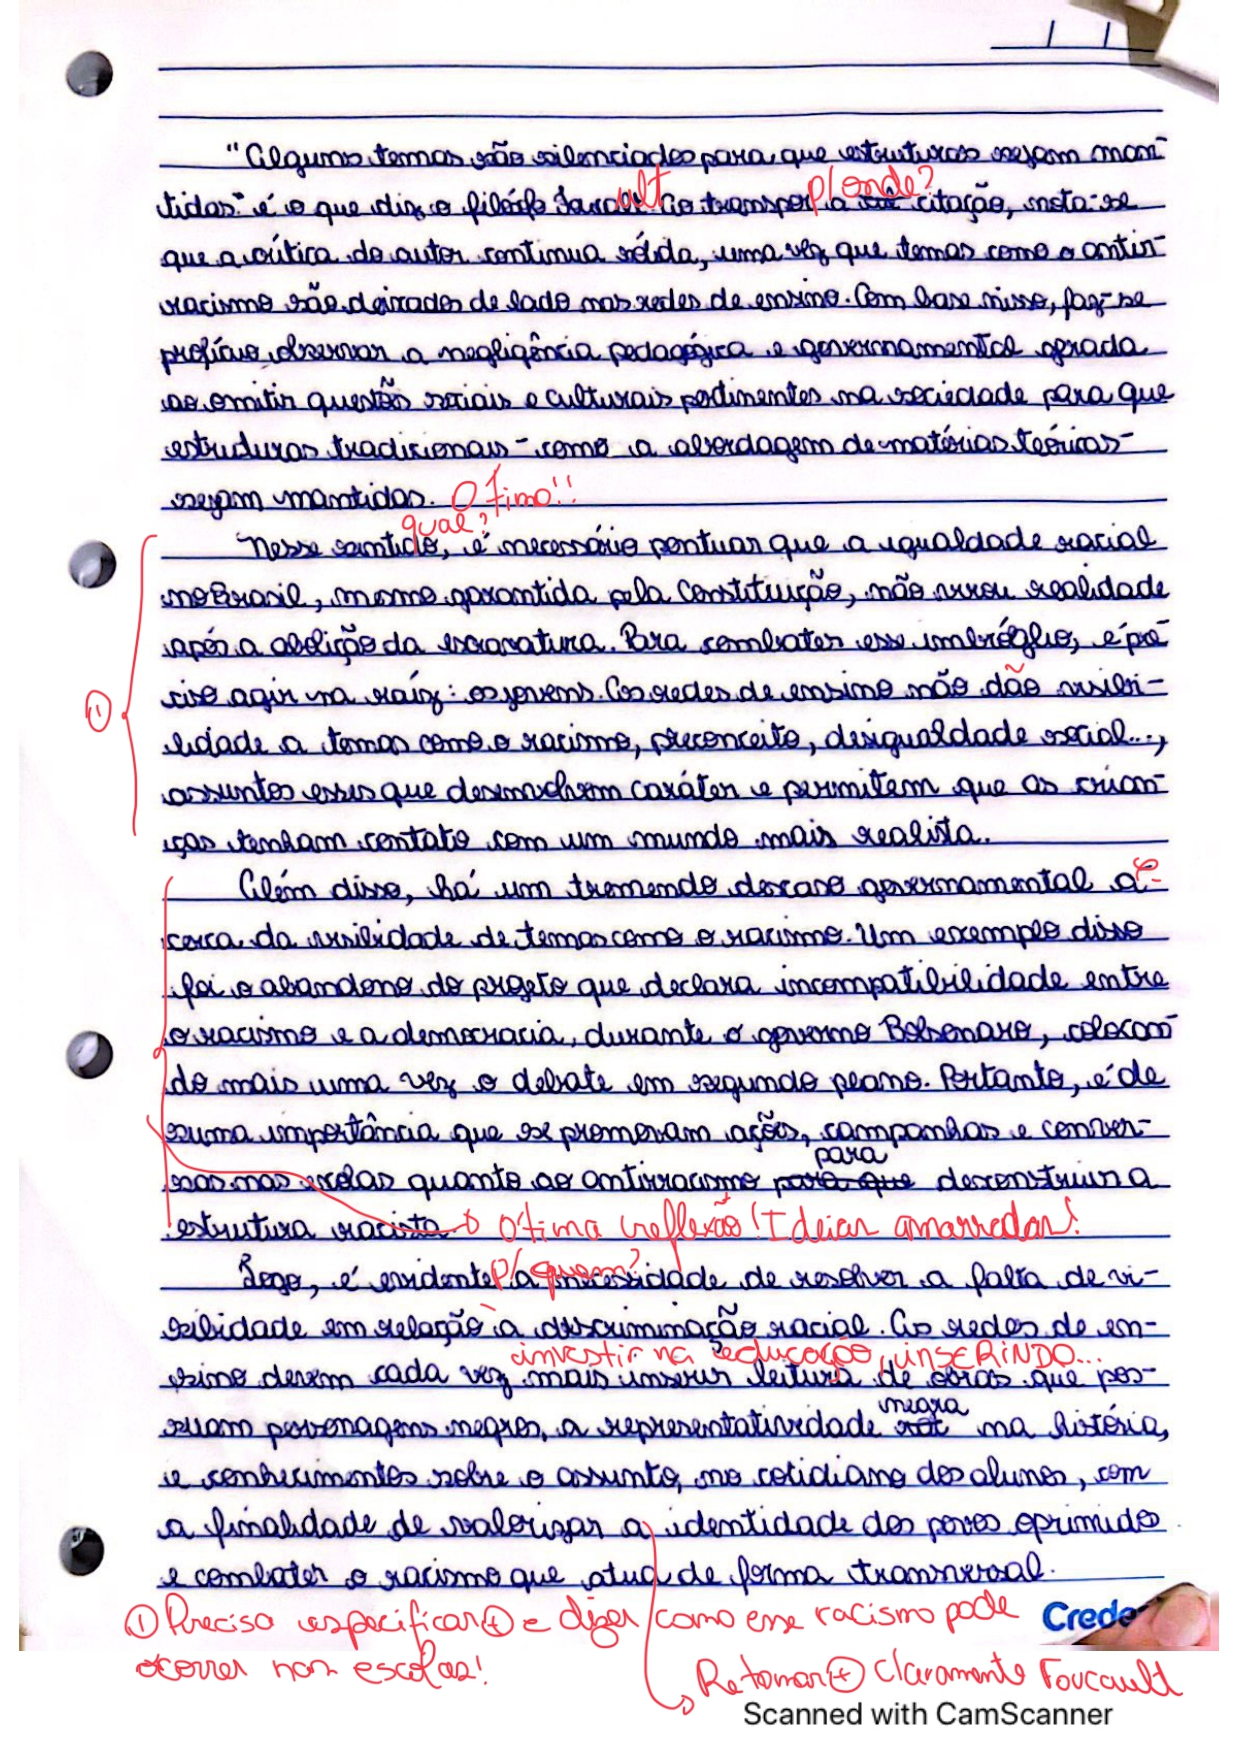 "Alguns temas são silenciados para que estruturas sejam man-
alt p/ onde?
tidas" é o que diz o filósfo Ao transpor a citação, nota-se
que a crítica do autor continua sólida, uma vez que temas como o antir-
racismo são deixados de lado nas redes de ensino. Com base nisso, faz-se
profícuo observar a negligência pedagógica e governamental gerada
ao omitir questões sociais e culturais pertinentes na sociedade para que
estruturas tradicionais - como a abordagem de matérias teóricas -
sejam mantidas. Ótimo!!
qual?
Nesse sentido, é necessário pontuar que a igualdade racial
no Brasil, mesmo garantida pela Constituição, não virou realidade
após a abolição da escravatura. Para combater esse imbróglio, é pre-
ciso agir na raíz: os jovens. As redes de ensino não dão visibi-
①
lidade a temas como o racismo, preconceito, desigualdade social...,
assuntos esses que desenvolvem caráter e permitem que as crian-
ças tenham contato com um mundo mais realista.
Além disso, há um tremendo descaso governamental a-
cerca da visilidade de temas como o racismo. Um exemplo disso
foi o abandono do projeto que declara incompatibilidade entre
o racismo e a democracia, durante o governo Bolsonaro, colocan-
do mais uma vez o debate em segundo plano. Portanto, é de
suma importância que se promovam ações, campanhas e conver-
para
sas nas escolas quanto ao antirracismo para que desconstruir a
estrutura racista. Ótima reflexão! Ideias amarradas!
p/ quem?
Logo, é evidente a necessidade de resolver a falta de vi-
sibidade em relação à discriminação racial. As redes de en-
investir na educação, INSERINDO...
sino devem cada vez mais inserir leitura de obras que pos-
negra
suam personagens negros, a representatividade na história,
e conhecimentos sobre o assunto, no cotidiano dos alunos, com
a finalidade de valorizar a identidade dos povos oprimidos
e combater o racismo que atua de forma transversal.
① Precisa especificar + e dizer como esse racismo pode
Crede
ocorrer nas escolas!
Retomar + claramente Foucault
Scanned with CamScanner